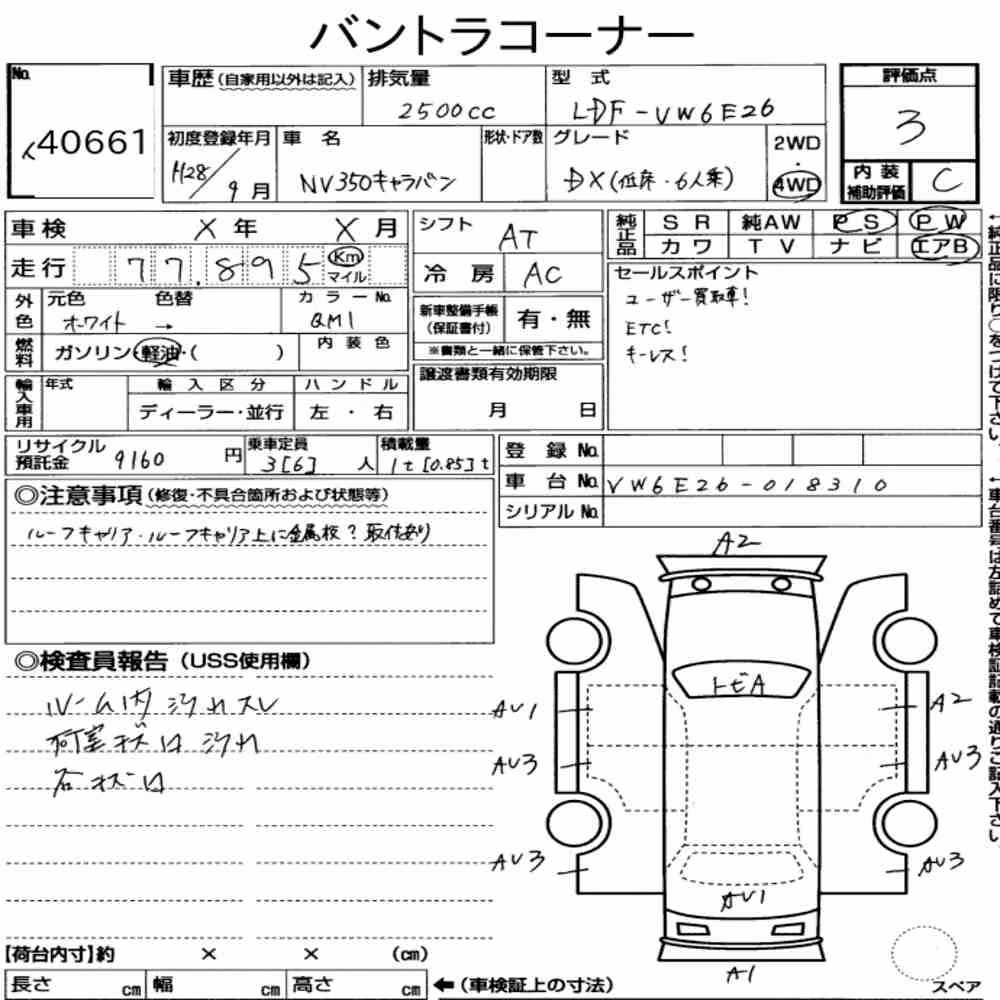 バントラコーナー
No. 40661
車歴(自家用以外は記入) 排気量 2500cc 型式 LDF-VW6E26 評価点 3
初度登録年月 H28/9月 車名 NV350キャラバン 形状・ドア数 グレード DX(低床・6人乗) 2WD・4WD 内装補助評価 C
車検 X年 X月 シフト AT 純正品 SR 純AW PS PW
カワ TV ナビ エアB
走行 77,895 Km マイル 冷房 AC
セールスポイント
ユーザー買取車!
ETC!
キーレス!
外色 元色 ホワイト → 色替 カラーNo. QM1
新車整備手帳(保証書付) 有・無
※書類と一緒に保管下さい。
燃料 ガソリン・軽油・( ) 内装色
譲渡書類有効期限
月 日
輸入車用 年式 輸入区分 ハンドル
ディーラー・並行 左・右
リサイクル預託金 9160円 乗車定員 3[6]人 積載量 1t[0.85]t
登録No.
車台No. VW6E26-018310
シリアルNo.
◎注意事項(修復・不具合箇所および状態等)
ルーフキャリア・ルーフキャリア上に金属板?取付あり
◎検査員報告(USS使用欄)
ルーム内汚れスレ
荷室キズ凹汚れ
右キズ凹
A2
トビA
AU1
A2
AU3
AU3
AU3
AU3
AU1
A1
スペア
【荷台内寸】約 × × (cm)
長さ cm 幅 cm 高さ cm ←(車検証上の寸法)
↑純正品に限り○をつけて下さい。
↑車台番号は左詰めで車検証記載の通りご記入下さい。